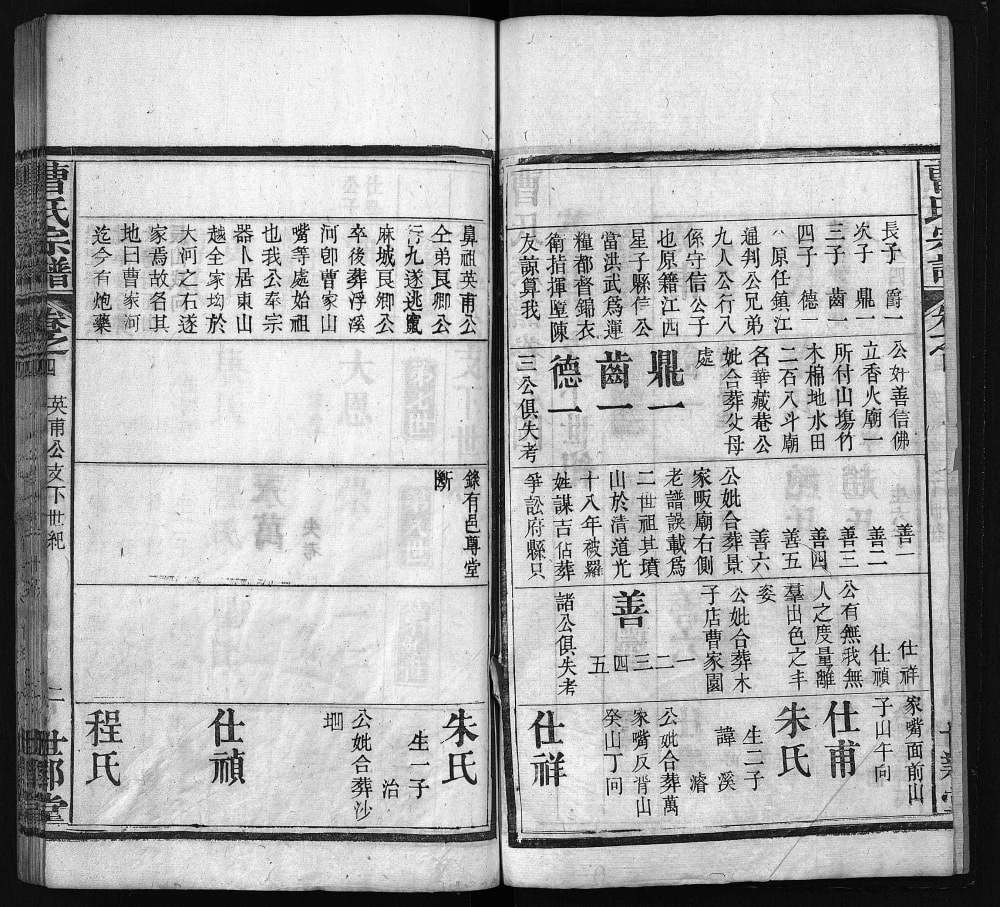 長子　爵一
次子　鼎一
三子　齒一
四子　德一
原任鎮江
通判公兄弟
九人公行八
係守信公子
也原籍江西
星子縣信公
當洪武爲運
糧都督錦衣
衛指揮壁陳
友諒算我
公奵善信佛
立香火廟一
所付山塲竹
木棉地水田
二石八斗廟
名華藏菴公
妣合葬父母
處
鼎一
齒一
德一
三公俱失考
善一
善二
善三
善四
善五
善六
公妣合葬景
家畈廟右側
老譜誤載爲
二世祖其墳
山於淸道光
十八年被羅
姓謀吉佔葬
爭訟府縣只
仕祥
仕禎
公有無我無
人之度量離
羣出色之丰
姿
公妣合葬木
子店曹家園
善　一二三四五
諸公俱失考
家嘴面前山
子山午向
仕甫
朱氏
生二子
諱　溪
濬
公妣合葬萬
家嘴反背山
癸山丁向
仕祥
鼻祖英甫公
仝弟艮卿公
行九遂逃竄
麻城艮卿公
卒後葬浮溪
河卽曹家山
嘴等處始祖
也我公奉宗
器卜居東山
越全家坳於
大河之石遂
家焉故名其
地曰曹家河
迄今有炮藥
錄有邑尊堂
斷
朱氏
生一子
治
公妣合葬沙
堋
仕禎
程氏
曹氏宗譜
卷之四
英甫公支下世紀
二